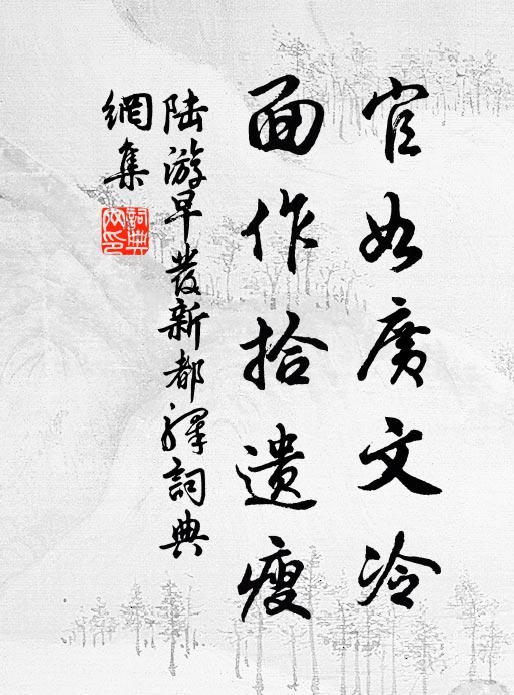 官如廣文冷
面作拾遗瘦
陆游早發新都驛詞典
網集
詞典
网印